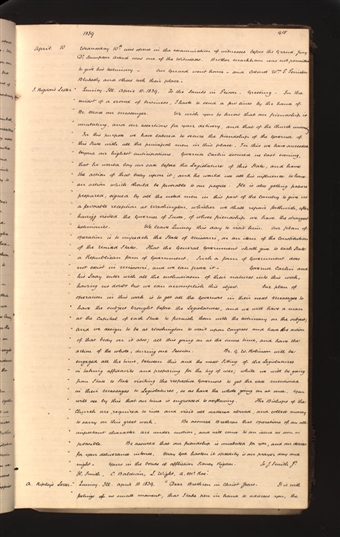 1839
April 10 Wednesday 10th was spent in the examination of witnesses before the Grand Jury
Dr Sampson Avard was one of the witnesses. Brother Markham was not permitted
to give his testimony. Our Guard went home, and Colonel Wm P. Peniston
Blakely and others took their place.
S Rigdon's Letter Quincy Ill. April 10, 1839. To the Saints in Prison, Greeting. In the
midst of a crowd of business, I haste to send a few lines by the hand of
Br Mace our messenger. We wish you to know that our friendship is
unabating, and our exertions for your delivery and that of the church
In this purpose we have labored to secure the friendship of the Governor of
this State with all the principal men in this place. In this we have succeeded
beyond our highest anticipations. Governor Carlin assured us last evening,
that he would lay our case before the Legislature of this State, and have
the action of that body upon it, and he would use all his influence to have
an action which should be favorable to our people. He is also getting papers
prepared, signed by all the noted men in this part of the Country to give us
a favorable reception at Washington, whither we shall repair forthwith, after
having visited the Governor of Iowa, of whose friendship we have the strongest
testimonies. We leave Quincy this day to visit him. Our plan of
operation is to impeach the State of Missouri, on an item of the Constitution
of the United States; that the General Government shall give to each State
a Republican form of Government. Such a form of Government does
not exist in Missouri, and we can prove it. Governor Carlin and
his Lady enter with all the enthusiasm of their natures into this work,
having no doubt but we can accomplish this object. Our plan of
operation in this work is to get all the Governors in their next messages to
have the subject brought before the Legislatures, and we will have a man
at the Capitol of each State to furnish them with the testimony on the subject;
and we design to be at Washington to wait upon Congress and have the action
of that body on it also; all this going on at the same time, and have the
action of the whole, during one Session. Br G. W. Robinson will be
engaged all the time, between this and the next sitting of the Legislatures
in taking affidavits and preparing for the tug of war, while we will be going
from State to State visiting the respective Governors to get the case mentioned
in their messages to Legislatures, so as to have the whole going on at once. You
will see by this that our time is engrossed to overflowing. The Bishops of the
Church are required to ride and visit all scattered abroad, and collect money
to carry on this great work. Be assured Brethren that operations of an all
important character are under motion, and will come to an issue as soon as
possible. Be assured that our friendship is unabated for you, and our desires
for your deliverance intense. May God hasten it speedily is our prayer day and
night. Yours in the bonds of affliction Sidney Rigdon. To J. Smith Jr
H. Smith, C. Baldwin, L. Wight, A. McRae.
A. Ripley's Letter Quincy Ill. April 10 1839. "Dear Brethren in Christ Jesus. It is with
feelings of no small moment, that I take pen in hand to address you, the